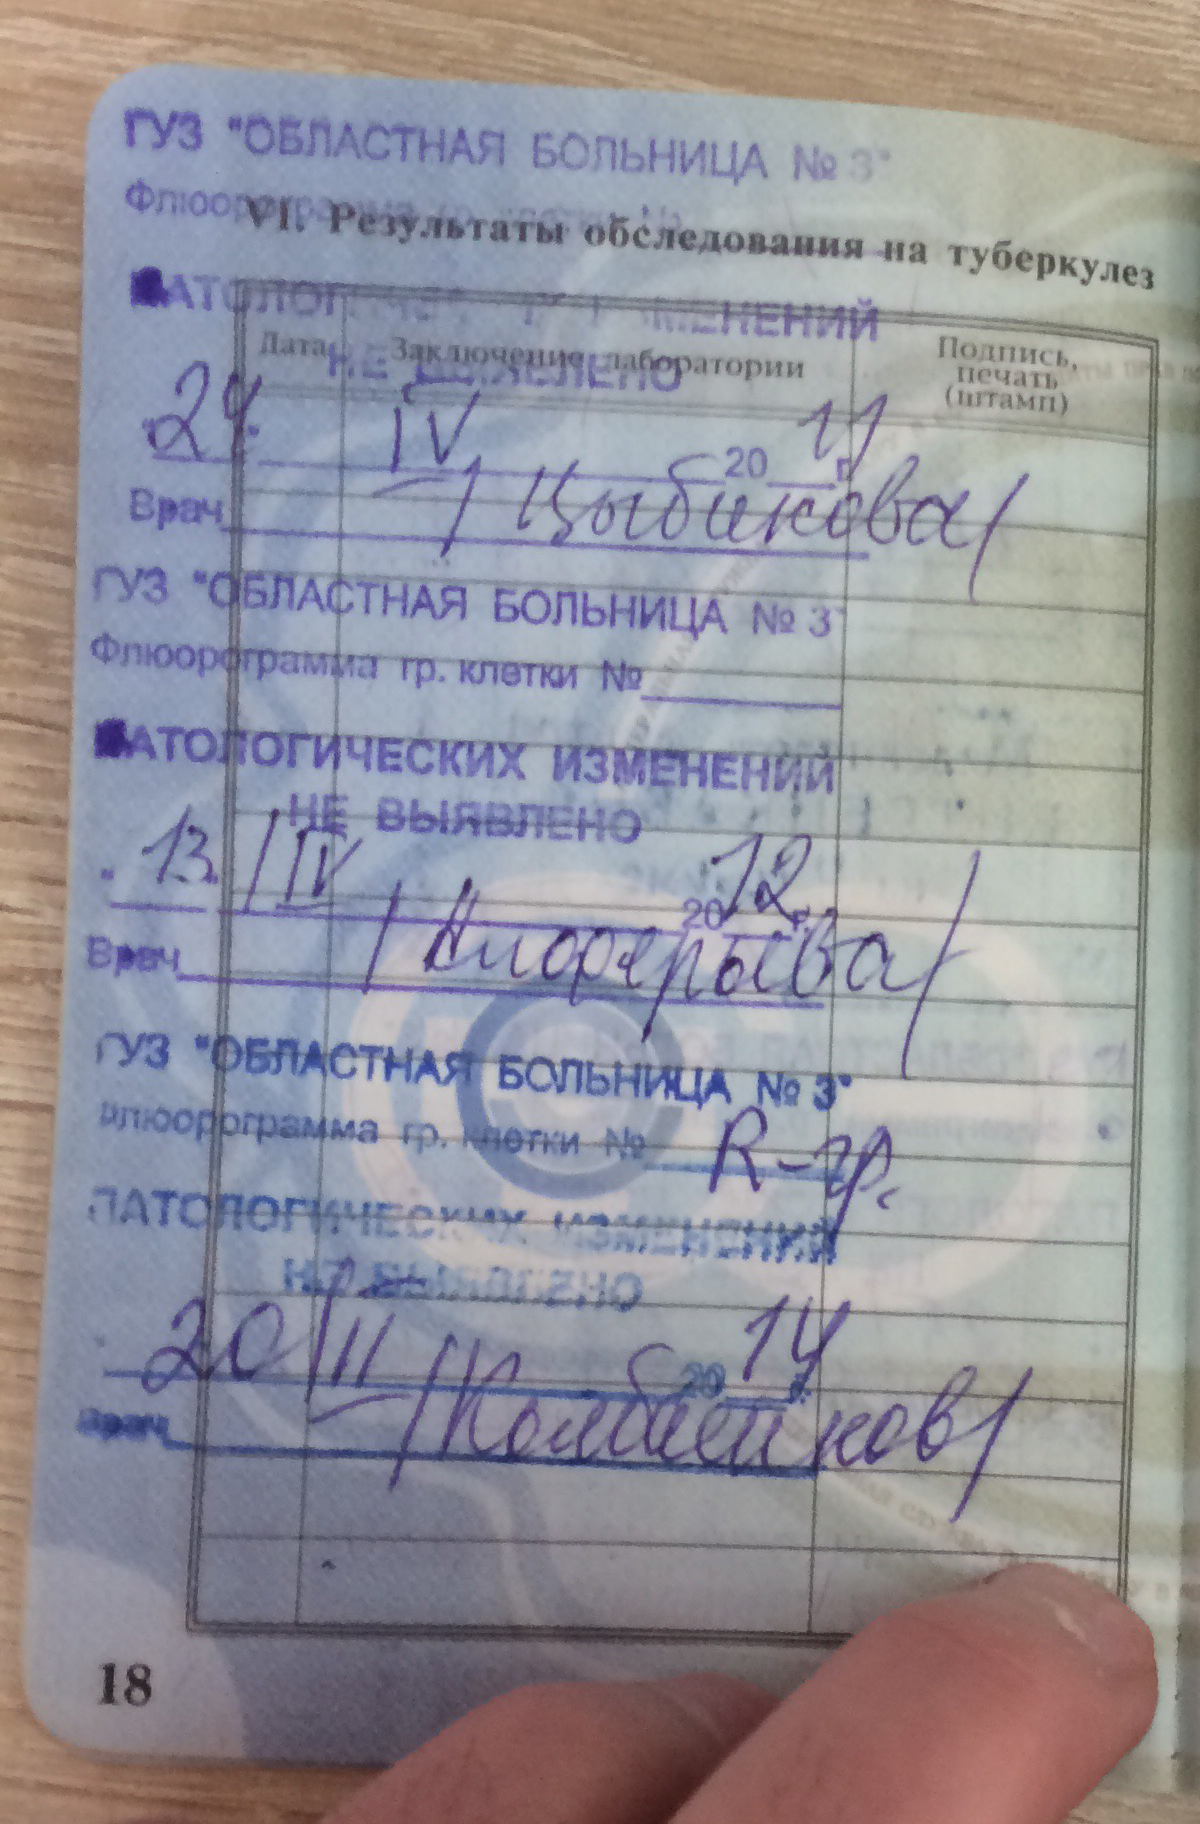 ГУЗ "ОБЛАСТНАЯ БОЛЬНИЦА № 3"
Флюорограмма гр. клетки №
VI. Результаты обследования на туберкулез
ПАТОЛОГИЧЕСКИХ ИЗМЕНЕНИЙ
НЕ ВЫЯВЛЕНО
Дата Заключение лаборатории Подпись, печать (штамп)
24. IV 2011 г.
Врач /Цыбикова/
ГУЗ "ОБЛАСТНАЯ БОЛЬНИЦА № 3"
Флюорограмма гр. клетки №
ПАТОЛОГИЧЕСКИХ ИЗМЕНЕНИЙ
НЕ ВЫЯВЛЕНО
"13." IV 2012 г.
Врач
ГУЗ "ОБЛАСТНАЯ БОЛЬНИЦА № 3"
Флюорограмма гр. клетки № R-гр.
ПАТОЛОГИЧЕСКИХ ИЗМЕНЕНИЙ
НЕ ВЫЯВЛЕНО
20 III 2014 г.
Врач
18